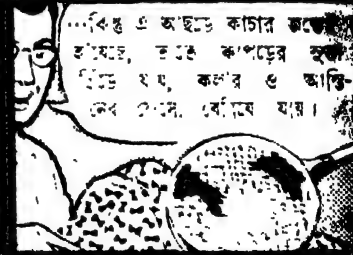 ...কিন্তু এ আছড়ে কাচার
হয়েছে, কাপড়ের সুতো
ছিঁড়ে যায়, কলার ও আস্তি-
নের বেরিয়ে যায়।